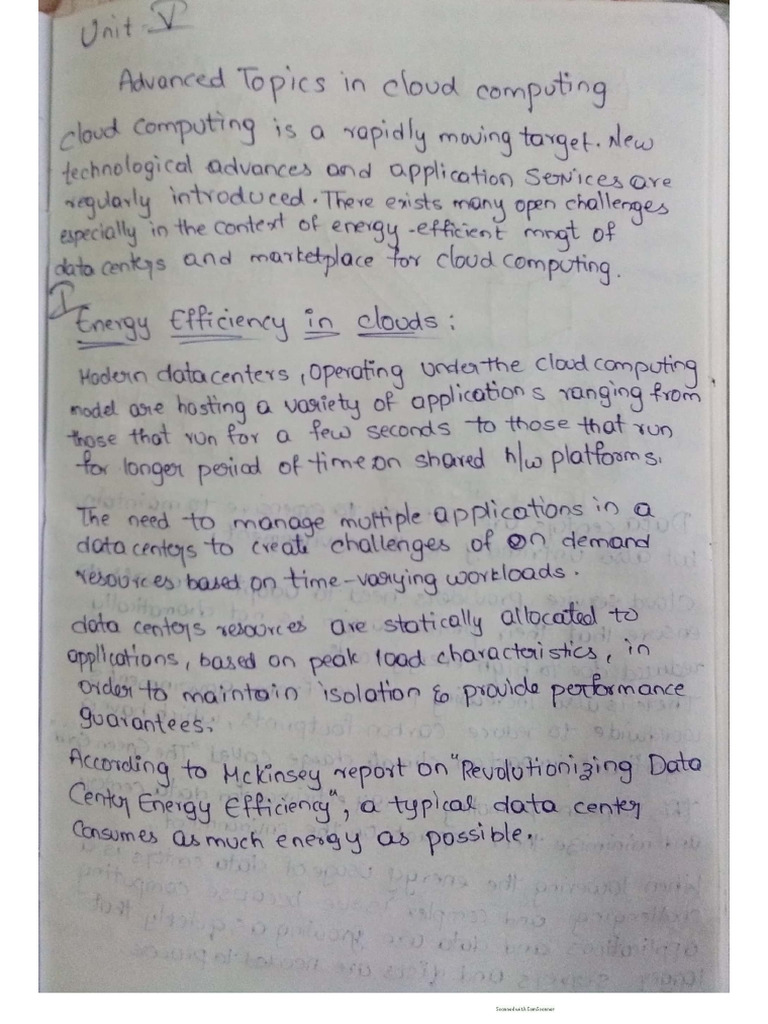 Unit - V
Advanced Topics in cloud computing
cloud computing is a rapidly moving target. New
technological advances and application services are
regularly introduced. There exists many open challenges
especially in the context of energy-efficient mngt of
data centers and marketplace for cloud computing.
I
Energy Efficiency in clouds:
Modern datacenters, operating under the cloud computing
model are hosting a variety of applications ranging from
those that run for a few seconds to those that run
for longer period of time on shared h/w platforms.
The need to manage multiple applications in a
data centers to create challenges of on demand
resources based on time-varying workloads.
data centers resources are statically allocated to
applications, based on peak load characteristics, in
order to maintain isolation & provide performance
guarantees.
According to McKinsey report on "Revolutionizing Data
Center Energy Efficiency", a typical data center
consumes as much energy as possible.
Scanned with CamScanner